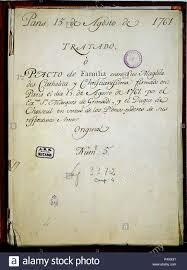 Paris 15 de Agosto de 1761
TRATADO,
ò
PACTO de Familia entre sus Magestades
Catholica y Christianissima, firmado en
Paris el dia 15 de Agosto de 1761 por el
Ex.mo S.r Marques de Grimaldi, y el Duque de
Choiseul en virtud de los Plenos-poderes de sus
respectivos Amos.
Original
Num.o 5.
3372
alamy stock photo